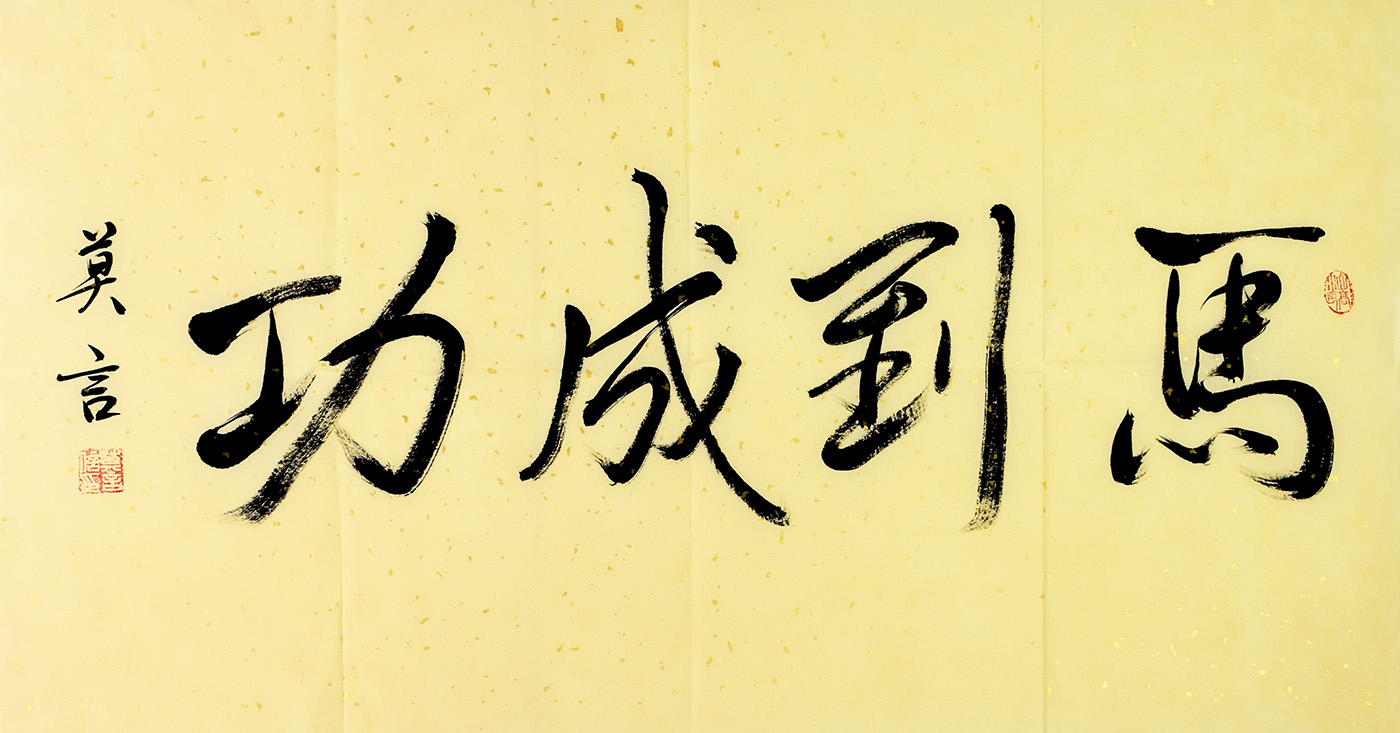 馬到成功
莫言